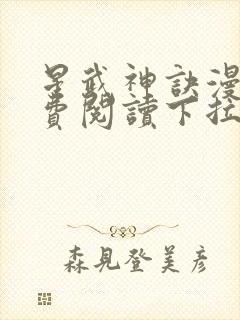 星武神訣漫
費閱讀下拉
森見登美彦